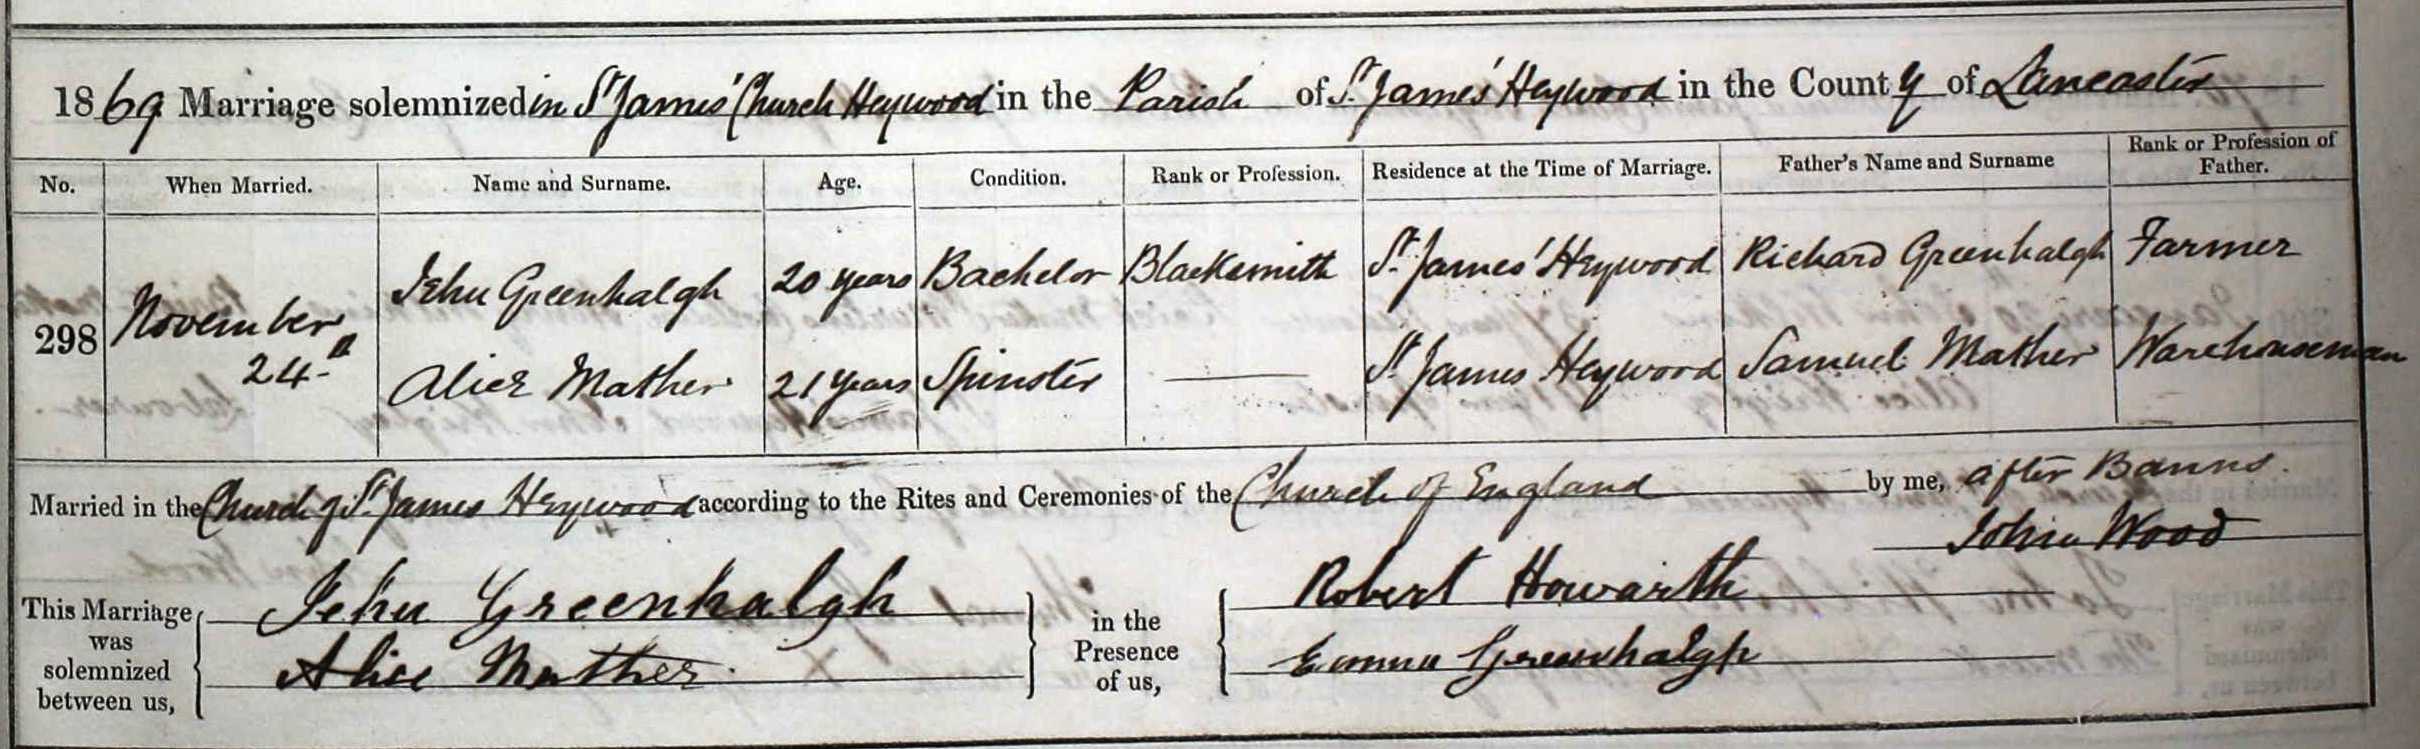 1869 Marriage solemnized in St James' Church Heywood in the Parish of St James' Heywood in the County of Lancaster
No. When Married. Name and Surname. Age. Condition. Rank or Profession. Residence at the Time of Marriage. Father's Name and Surname Rank or Profession of Father.
298 November 24th
Jehu Greenhalgh 20 years Bachelor Blacksmith St James' Heywood Richard Greenhalgh Farmer
Alice Mather 21 years Spinster St James Heywood Samuel Mather Warehouseman
Married in the Church of St James Heywood according to the Rites and Ceremonies of the Church of England by me, after Banns.
John Wood
This Marriage was solemnized between us,
Jehu Greenhalgh
Alice Mather
in the Presence of us,
Robert Howarth
Emma Greenhalgh